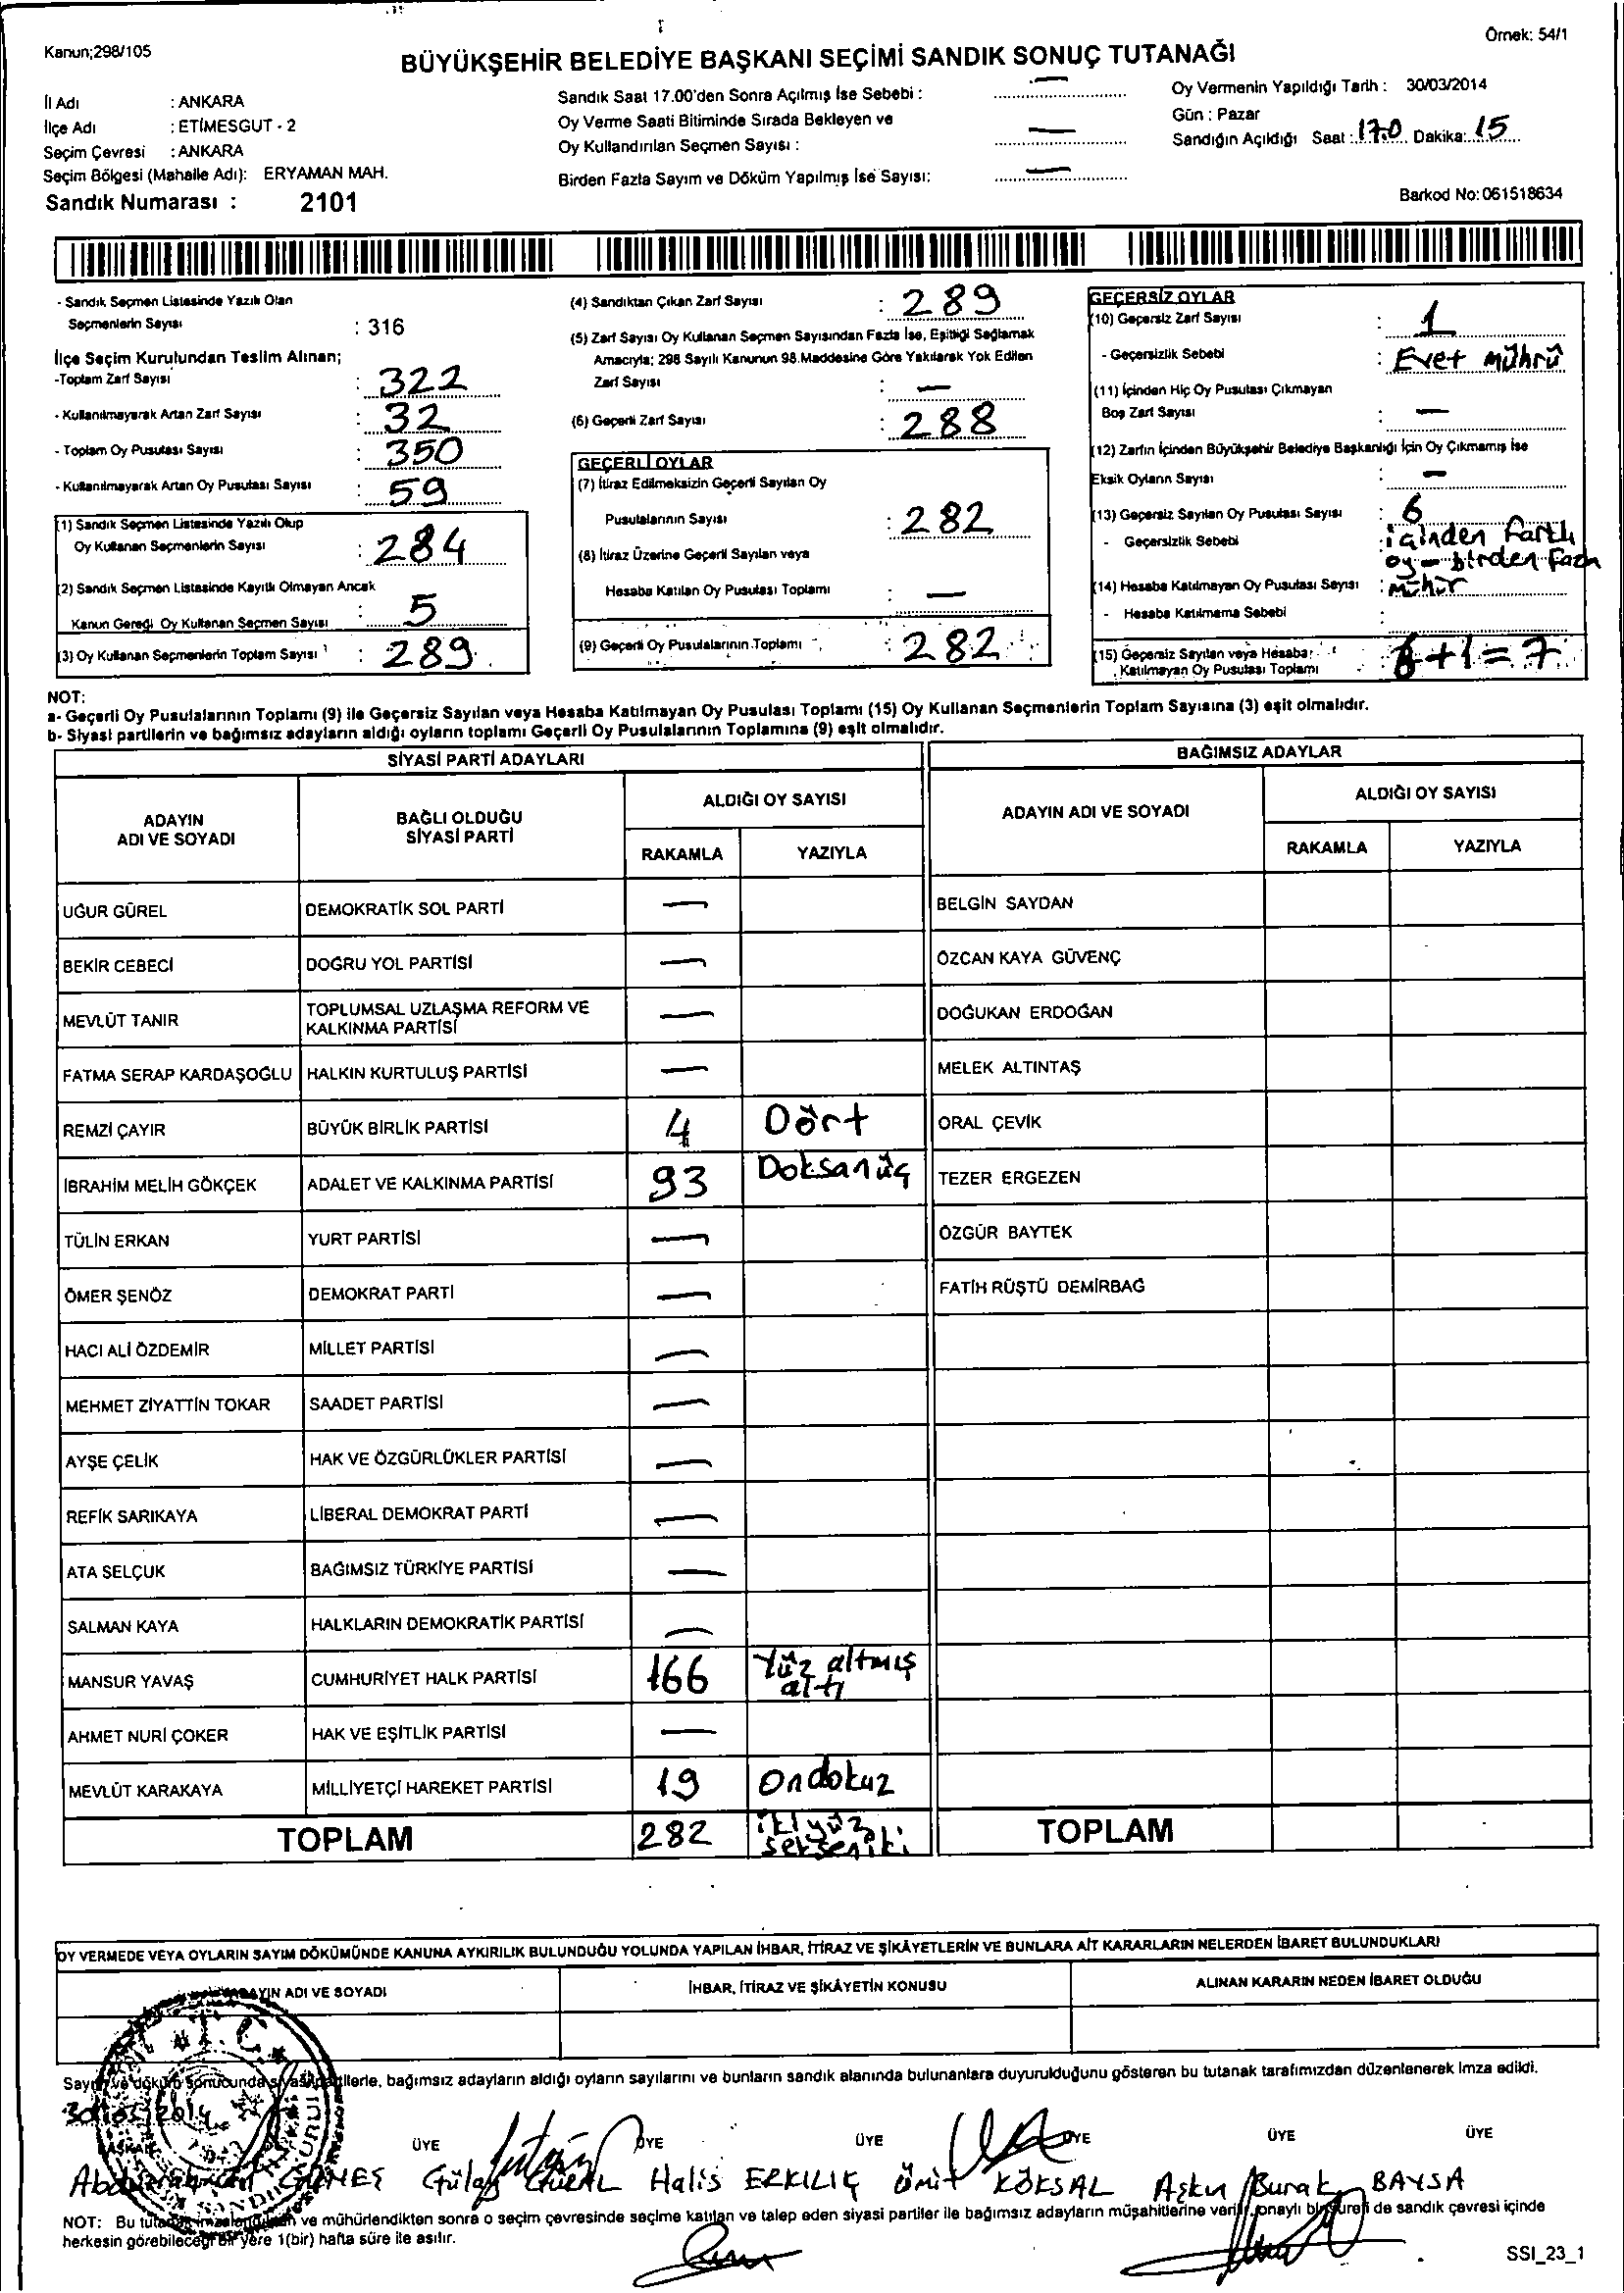 Kanun;298/105
Örnek: 54/1
BÜYÜKŞEHİR BELEDİYE BAŞKANI SEÇİMİ SANDIK SONUÇ TUTANAĞI
İl Adı : ANKARA
İlçe Adı : ETİMESGUT - 2
Seçim Çevresi : ANKARA
Seçim Bölgesi (Mahalle Adı): ERYAMAN MAH.
Sandık Numarası : 2101
Sandık Saat 17.00'den Sonra Açılmış İse Sebebi : —
Oy Verme Saati Bitiminde Sırada Bekleyen ve
Oy Kullandırılan Seçmen Sayısı : —
Birden Fazla Sayım ve Döküm Yapılmış İse Sayısı: —
Oy Vermenin Yapıldığı Tarih : 30/03/2014
Gün : Pazar
Sandığın Açıldığı Saat : 17.0 Dakika: 15
Barkod No: 061518634
- Sandık Seçmen Listesinde Yazılı Olan
Seçmenlerin Sayısı : 316
İlçe Seçim Kurulundan Teslim Alınan;
-Toplam Zarf Sayısı : 322
- Kullanılmayarak Artan Zarf Sayısı : 32
- Toplam Oy Pusulası Sayısı : 350
- Kullanılmayarak Artan Oy Pusulası Sayısı : 59
(1) Sandık Seçmen Listesinde Yazılı Olup
Oy Kullanan Seçmenlerin Sayısı : 284
(2) Sandık Seçmen Listesinde Kayıtlı Olmayan Ancak
Kanun Gereği Oy Kullanan Seçmen Sayısı : 5
(3) Oy Kullanan Seçmenlerin Toplam Sayısı : 289
(4) Sandıktan Çıkan Zarf Sayısı : 289
(5) Zarf Sayısı Oy Kullanan Seçmen Sayısından Fazla İse, Eşitliği Sağlamak
Amacıyla; 298 Sayılı Kanunun 98.Maddesine Göre Yakılarak Yok Edilen
Zarf Sayısı : —
(6) Geçerli Zarf Sayısı : 288
GEÇERLİ OYLAR
(7) İtiraz Edilmeksizin Geçerli Sayılan Oy
Pusulalarının Sayısı : 282
(8) İtiraz Üzerine Geçerli Sayılan veya
Hesaba Katılan Oy Pusulası Toplamı : —
(9) Geçerli Oy Pusulalarının Toplamı : 282
GEÇERSİZ OYLAR
(10) Geçersiz Zarf Sayısı : 1
- Geçersizlik Sebebi : Evet mührü
(11) İçinden Hiç Oy Pusulası Çıkmayan
Boş Zarf Sayısı : —
(12) Zarfın İçinden Büyükşehir Belediye Başkanlığı İçin Oy Çıkmamış İse
Eksik Oyların Sayısı : —
(13) Geçersiz Sayılan Oy Pusulası Sayısı : 6
- Geçersizlik Sebebi : içinden farklı
oy - birden Fazla
(14) Hesaba Katılmayan Oy Pusulası Sayısı : Mühür
- Hesaba Katılmama Sebebi :
(15) Geçersiz Sayılan veya Hesaba
Katılmayan Oy Pusulası Toplamı : 6+1=7
NOT:
a- Geçerli Oy Pusulalarının Toplamı (9) ile Geçersiz Sayılan veya Hesaba Katılmayan Oy Pusulası Toplamı (15) Oy Kullanan Seçmenlerin Toplam Sayısına (3) eşit olmalıdır.
b- Siyasi partilerin ve bağımsız adayların aldığı oyların toplamı Geçerli Oy Pusulalarının Toplamına (9) eşit olmalıdır.
SİYASİ PARTİ ADAYLARI
BAĞIMSIZ ADAYLAR
ADAYIN
ADI VE SOYADI
BAĞLI OLDUĞU
SİYASİ PARTİ
ALDIĞI OY SAYISI
RAKAMLA YAZIYLA
ADAYIN ADI VE SOYADI
ALDIĞI OY SAYISI
RAKAMLA YAZIYLA
UĞUR GÜREL DEMOKRATİK SOL PARTİ — BELGİN SAYDAN
BEKİR CEBECİ DOĞRU YOL PARTİSİ — ÖZCAN KAYA GÜVENÇ
MEVLÜT TANIR TOPLUMSAL UZLAŞMA REFORM VE
KALKINMA PARTİSİ — DOĞUKAN ERDOĞAN
FATMA SERAP KARDAŞOĞLU HALKIN KURTULUŞ PARTİSİ — MELEK ALTINTAŞ
REMZİ ÇAYIR BÜYÜK BİRLİK PARTİSİ 4 Dört ORAL ÇEVİK
İBRAHİM MELİH GÖKÇEK ADALET VE KALKINMA PARTİSİ 93 Doksanüç TEZER ERGEZEN
TÜLİN ERKAN YURT PARTİSİ — ÖZGÜR BAYTEK
ÖMER ŞENÖZ DEMOKRAT PARTİ — FATİH RÜŞTÜ DEMİRBAĞ
HACI ALİ ÖZDEMİR MİLLET PARTİSİ —
MEHMET ZİYATTİN TOKAR SAADET PARTİSİ —
AYŞE ÇELİK HAK VE ÖZGÜRLÜKLER PARTİSİ —
REFİK SARIKAYA LİBERAL DEMOKRAT PARTİ —
ATA SELÇUK BAĞIMSIZ TÜRKİYE PARTİSİ —
SALMAN KAYA HALKLARIN DEMOKRATİK PARTİSİ —
MANSUR YAVAŞ CUMHURİYET HALK PARTİSİ 166 Yüz altmış
altı
AHMET NURİ ÇOKER HAK VE EŞİTLİK PARTİSİ —
MEVLÜT KARAKAYA MİLLİYETÇİ HAREKET PARTİSİ 19 Ondokuz
TOPLAM 282 ikiyüz
sekseniki
TOPLAM
OY VERMEDE VEYA OYLARIN SAYIM DÖKÜMÜNDE KANUNA AYKIRILIK BULUNDUĞU YOLUNDA YAPILAN İHBAR, İTİRAZ VE ŞİKÂYETLERİN VE BUNLARA AİT KARARLARIN NELERDEN İBARET BULUNDUKLARI
ADI VE SOYADI
İHBAR, İTİRAZ VE ŞİKÂYETİN KONUSU
ALINAN KARARIN NEDEN İBARET OLDUĞU
Sayım ve döküm sonucunda siyasi partilerle, bağımsız adayların aldığı oyların sayılarını ve bunların sandık alanında bulunanlara duyurulduğunu gösteren bu tutanak tarafımızdan düzenlenerek imza edildi.
30/03/2014
T.C.
BAŞKAN ÜYE ÜYE ÜYE ÜYE ÜYE ÜYE
Abdurrahman GÜNEŞ Halis ERKILIÇ Ümit KÖKSAL Aşkın Burak BAYSA
NOT: Bu tutanak imzalandıktan ve mühürlendikten sonra o seçim çevresinde seçime katılan ve talep eden siyasi partiler ile bağımsız adayların müşahitlerine verilir, onaylı bir sureti de sandık çevresi içinde
herkesin görebileceği bir yere 1(bir) hafta süre ile asılır.
SSI_23_1